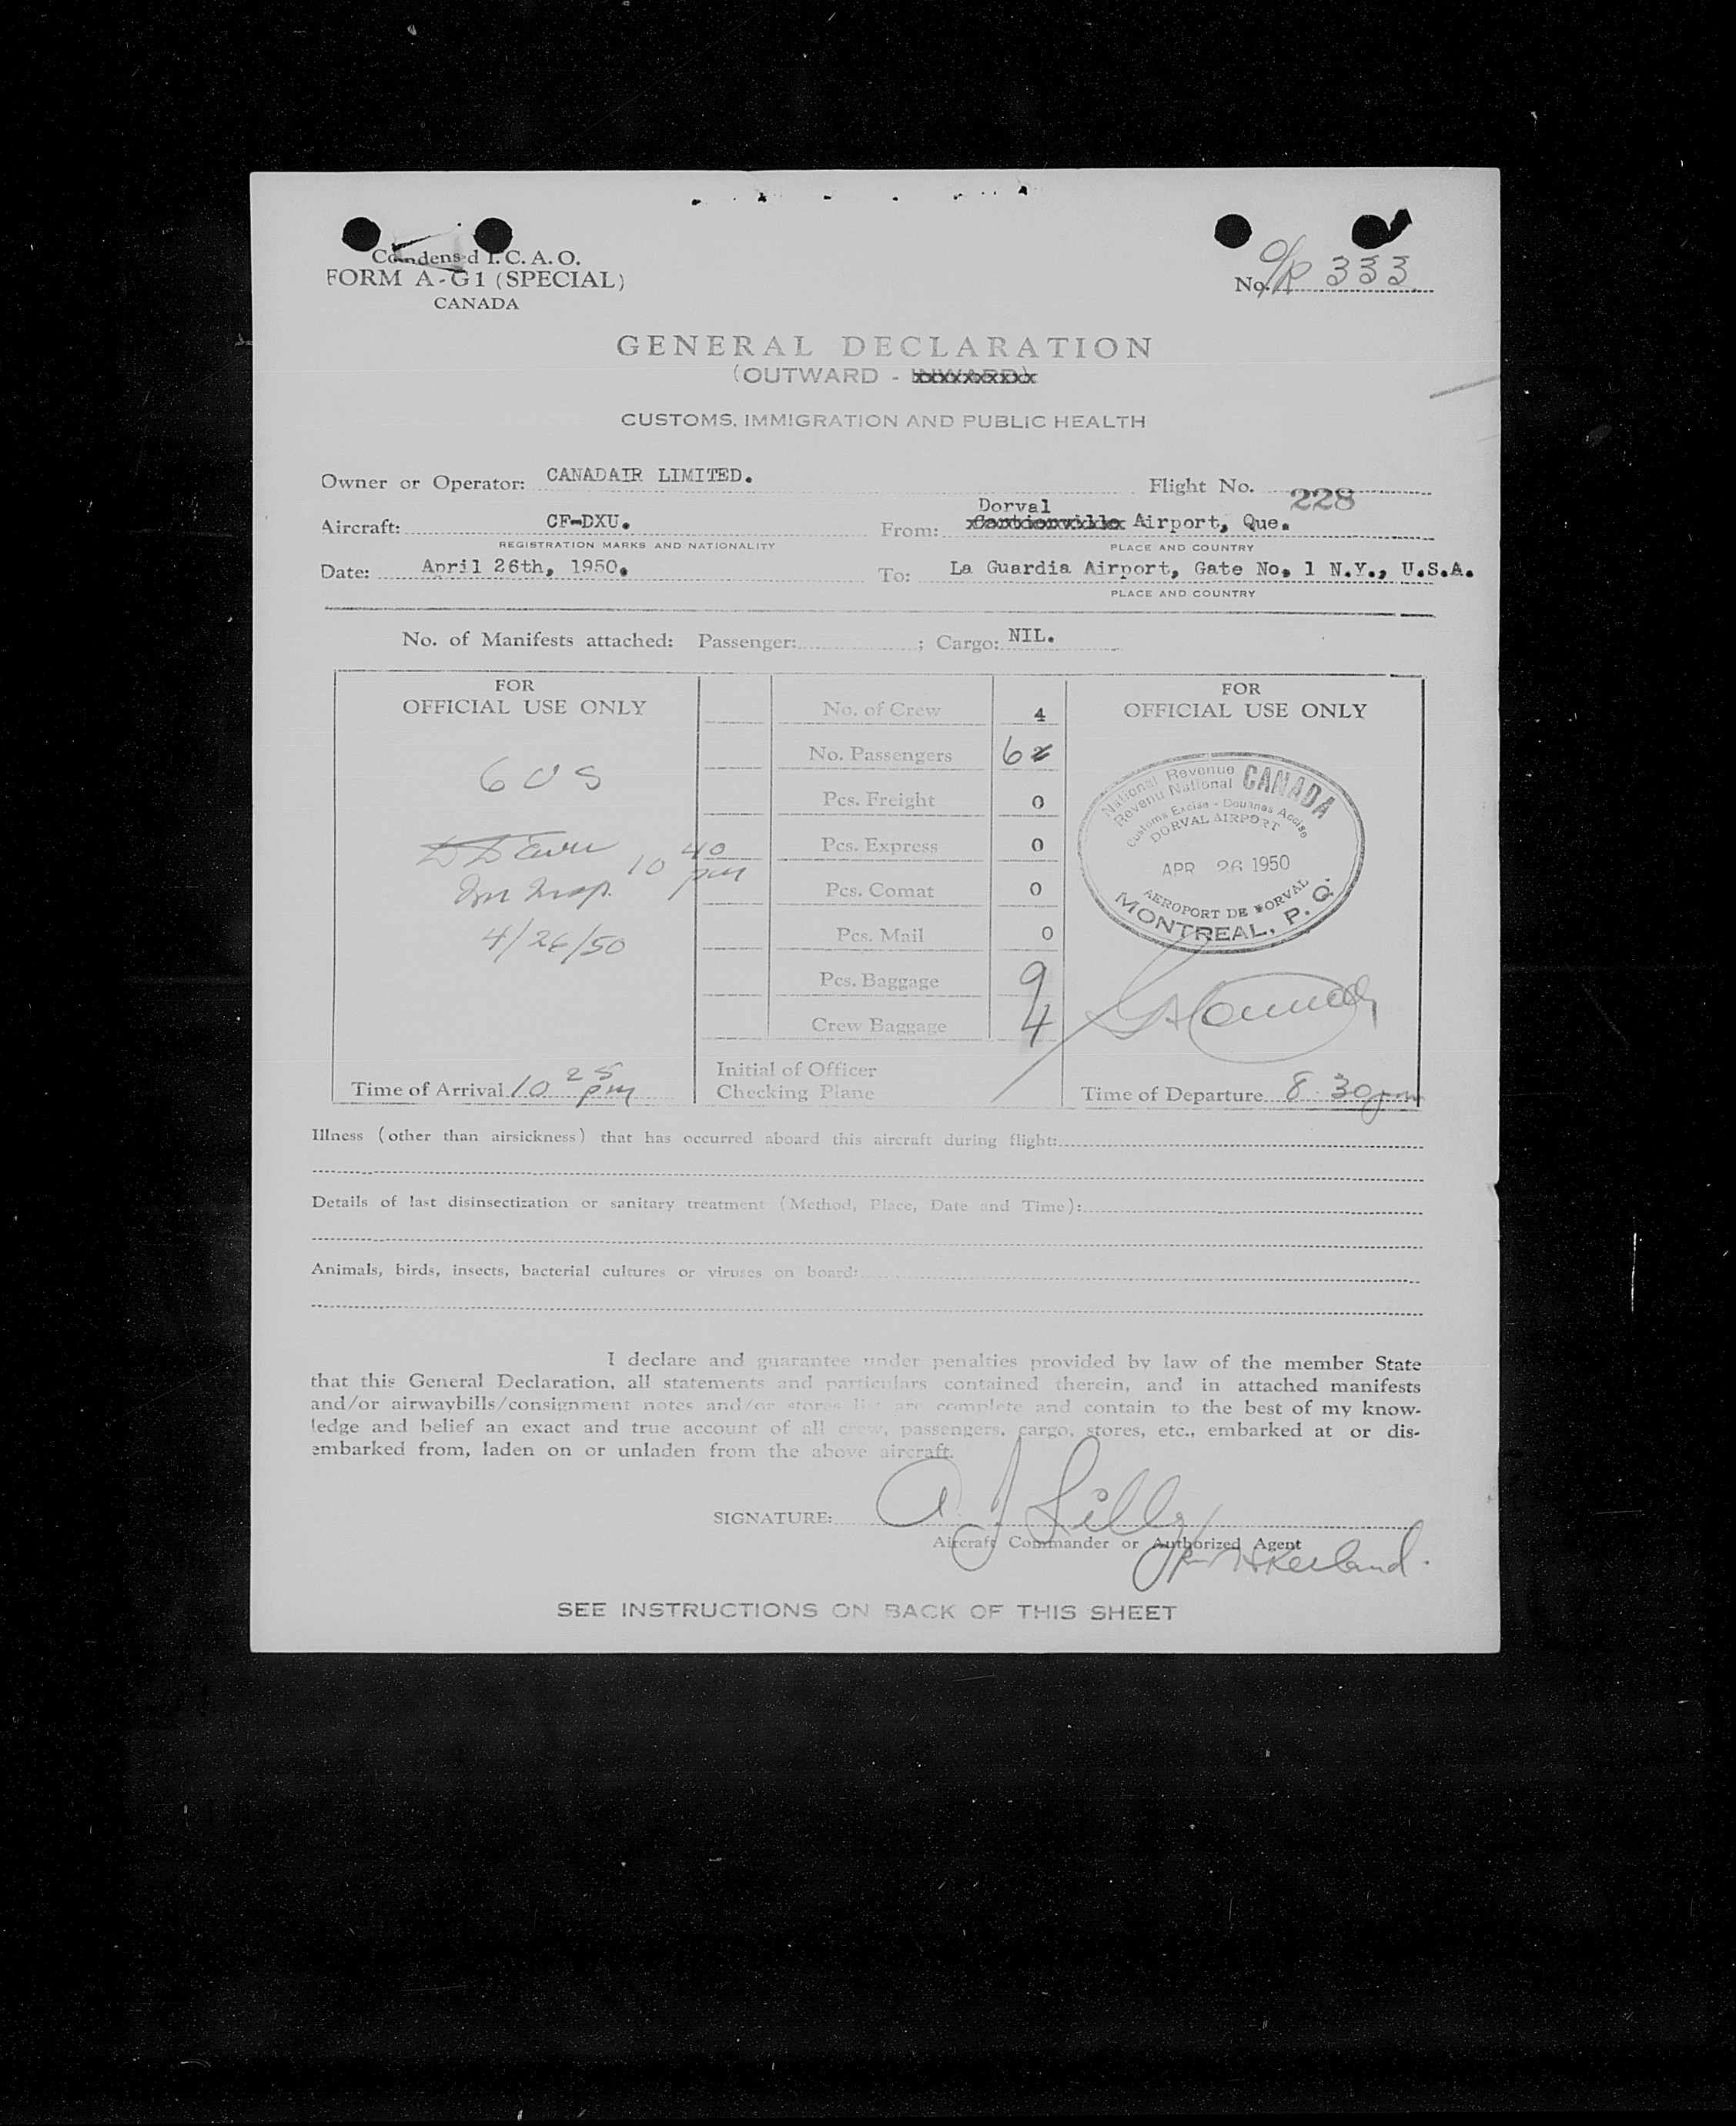 Condensed I. C. A. O.
FORM A-G1 (SPECIAL)
CANADA
No. O/R 333
GENERAL DECLARATION
(OUTWARD - INWARD)
CUSTOMS, IMMIGRATION AND PUBLIC HEALTH
Owner or Operator: CANADAIR LIMITED. Flight No. 228
Dorval
Aircraft: CF-DXU. From: Cartierville Airport, Que.
REGISTRATION MARKS AND NATIONALITY PLACE AND COUNTRY
Date: April 26th, 1950. To: La Guardia Airport, Gate No. 1 N.Y., U.S.A.
PLACE AND COUNTRY
No. of Manifests attached: Passenger: ; Cargo: NIL.
FOR
OFFICIAL USE ONLY
6 US
10 40 pm
4/26/50
Time of Arrival 10 25 pm
No. of Crew 4
No. Passengers 6 2
Pcs. Freight 0
Pcs. Express 0
Pcs. Comat 0
Pcs. Mail 0
Pcs. Baggage 9
Crew Baggage 4
Initial of Officer
Checking Plane
FOR
OFFICIAL USE ONLY
National Revenue CANADA
Revenu National
Customs Excise - Douanes Accise
DORVAL AIRPORT
APR 26 1950
AEROPORT DE DORVAL
MONTREAL, P. Q.
Time of Departure 8 30 pm
Illness (other than airsickness) that has occurred aboard this aircraft during flight:
Details of last disinsectization or sanitary treatment (Method, Place, Date and Time):
Animals, birds, insects, bacterial cultures or viruses on board:
I declare and guarantee under penalties provided by law of the member State
that this General Declaration, all statements and particulars contained therein, and in attached manifests
and/or airwaybills/consignment notes and/or stores list are complete and contain to the best of my know-
ledge and belief an exact and true account of all crew, passengers, cargo, stores, etc., embarked at or dis-
embarked from, laden on or unladen from the above aircraft.
SIGNATURE: A J Lilly
Aircraft Commander or Authorized Agent
SEE INSTRUCTIONS ON BACK OF THIS SHEET